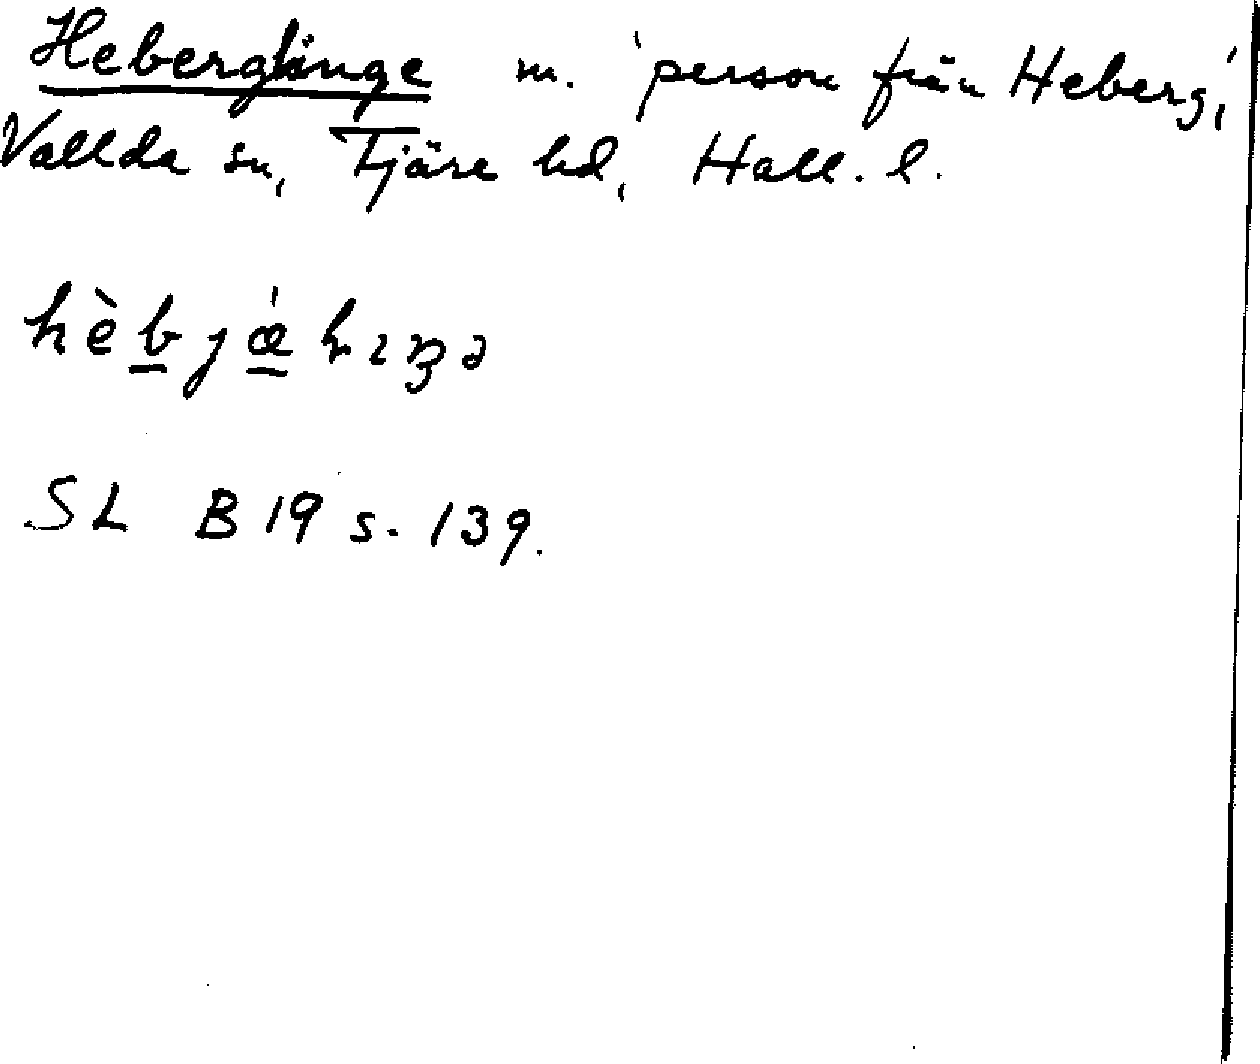 Heberglänge m. 'person från Heberg',
Vallda sn, Fjäre hd, Hall. l.
SL B 19 s. 139.